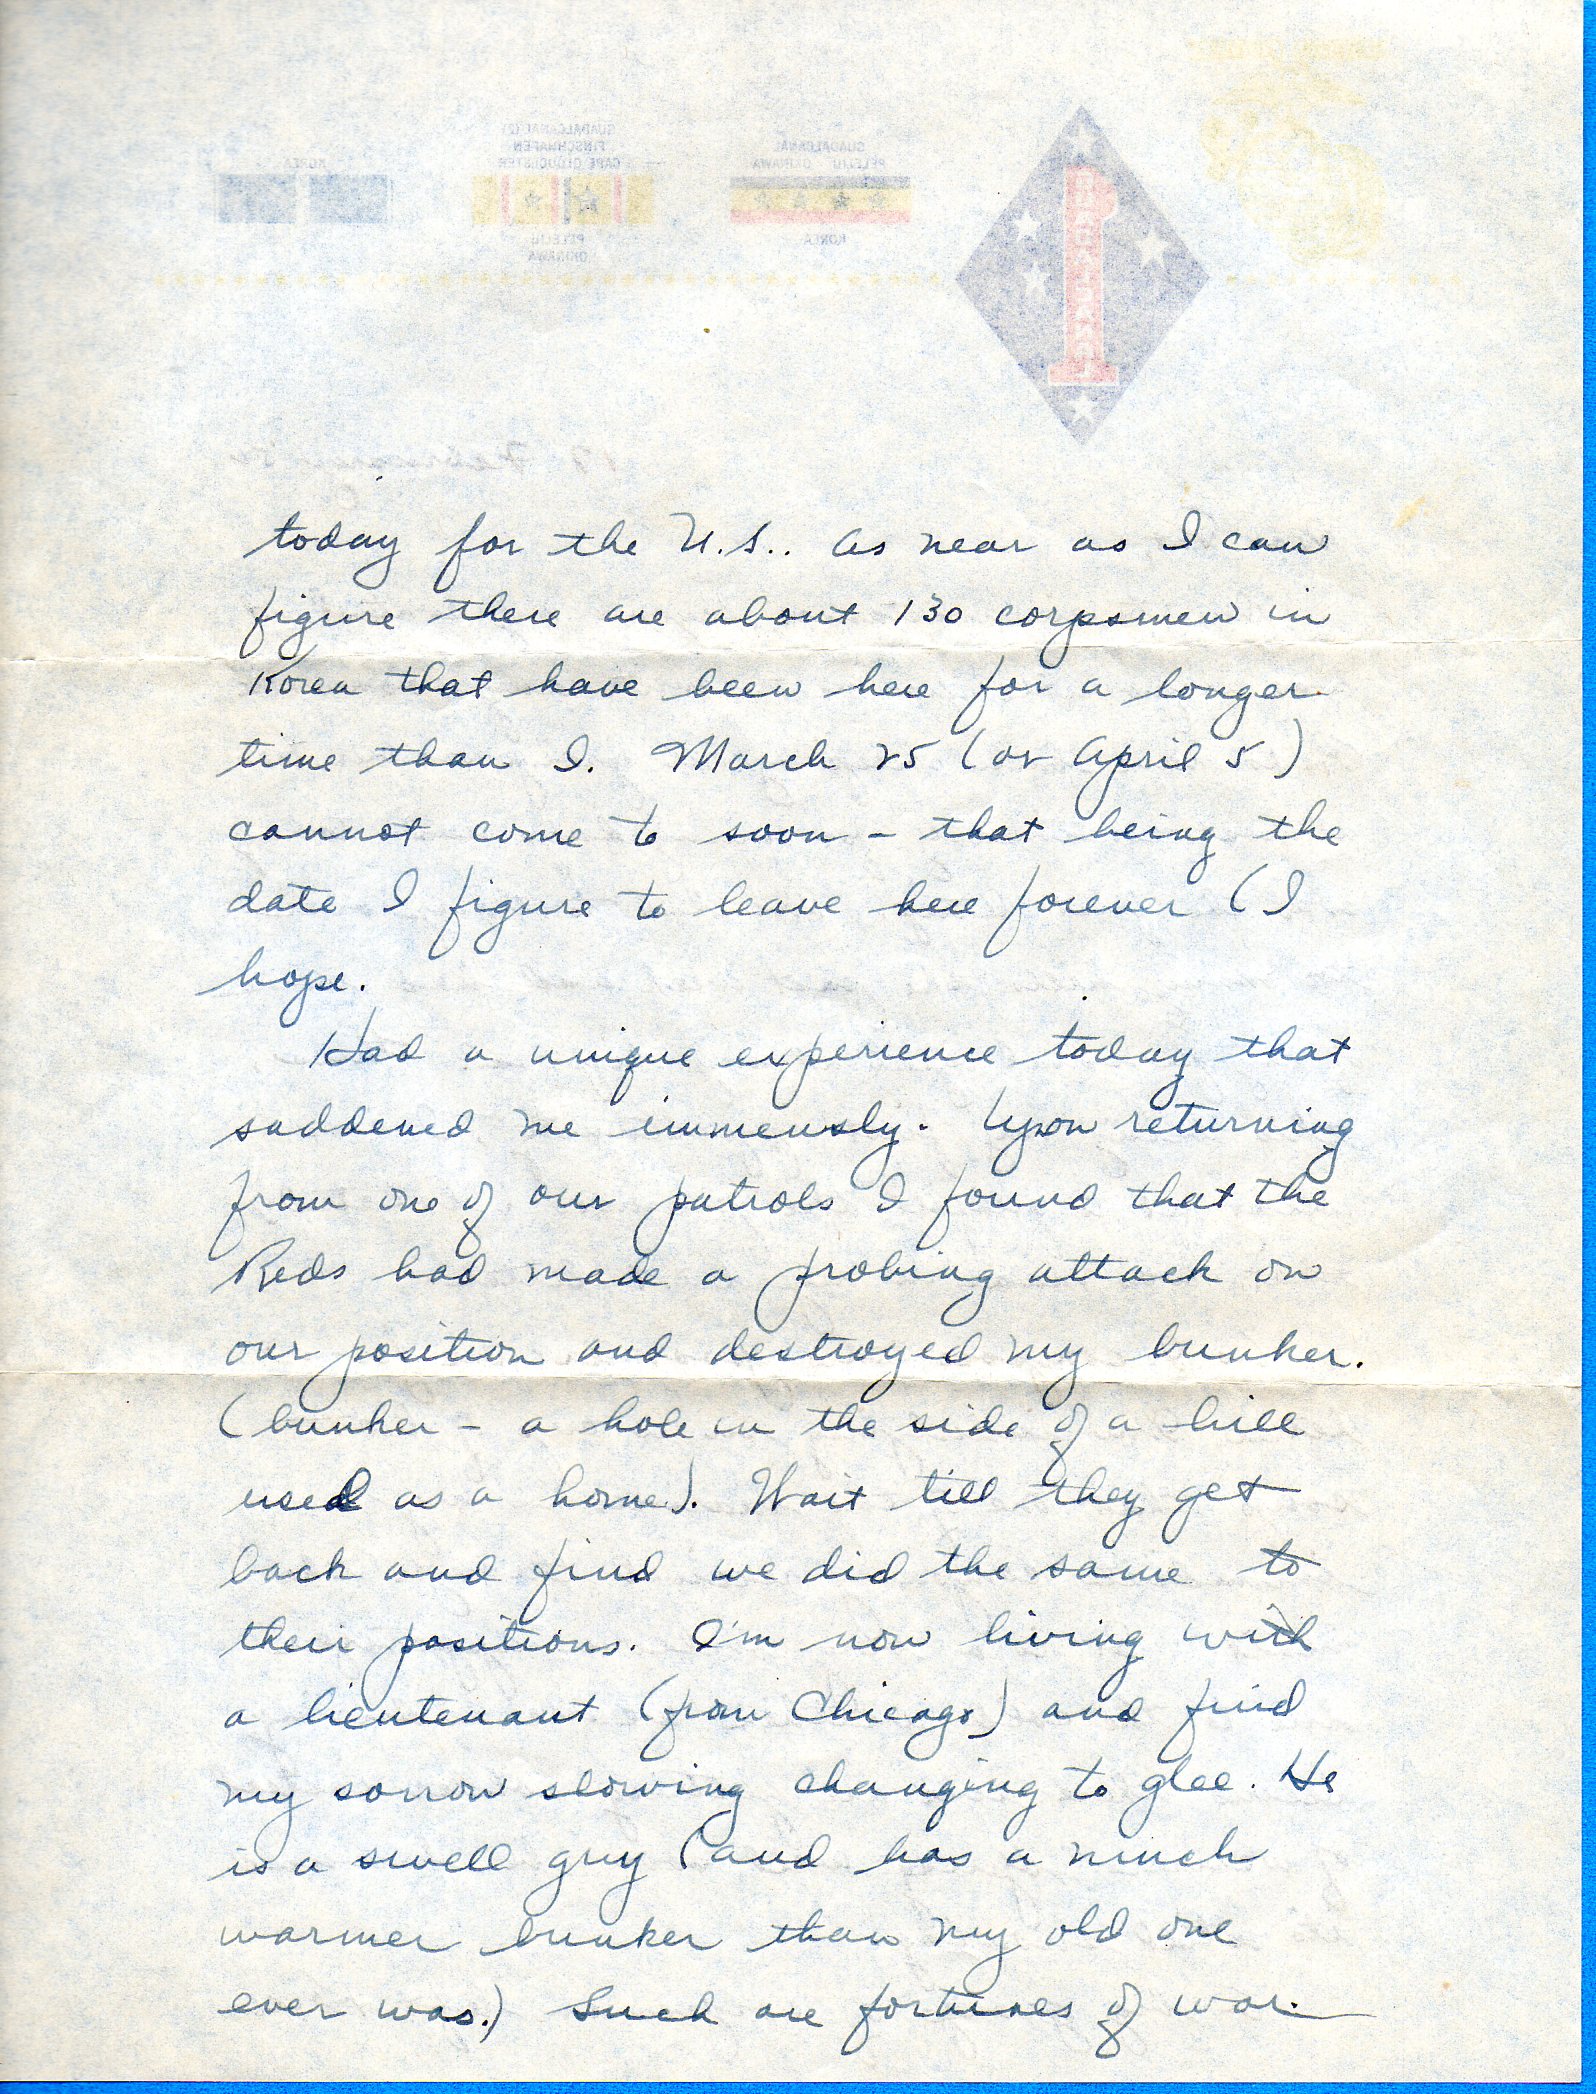 GUADALCANAL
PELELIU OKINAWA
KOREA
GUADALCANAL (2)
FINSCHHAFEN
CAPE GLOUCESTER
PELELIU
OKINAWA
KOREA
GUADALCANAL
today for the U.S.. As near as I can
figure there are about 130 corpsmen in
Korea that have been here for a longer
time than I. March 25 (or April 5)
cannot come to soon - that being the
date I figure to leave here forever (I
hope.
Had a unique experience today that
saddened me immensly. Upon returning
from one of our patrols I found that the
Reds had made a probing attack on
our position and destroyed my bunker.
(bunker - a hole in the side of a hill
used as a home). Wait till they get
back and find we did the same to
their positions. I'm now living with
a lieutenant (from Chicago) and find
my sorrow slowing changing to glee. He
is a swell guy (and has a much
warmer bunker than my old one
ever was.) Such are fortunes of war.